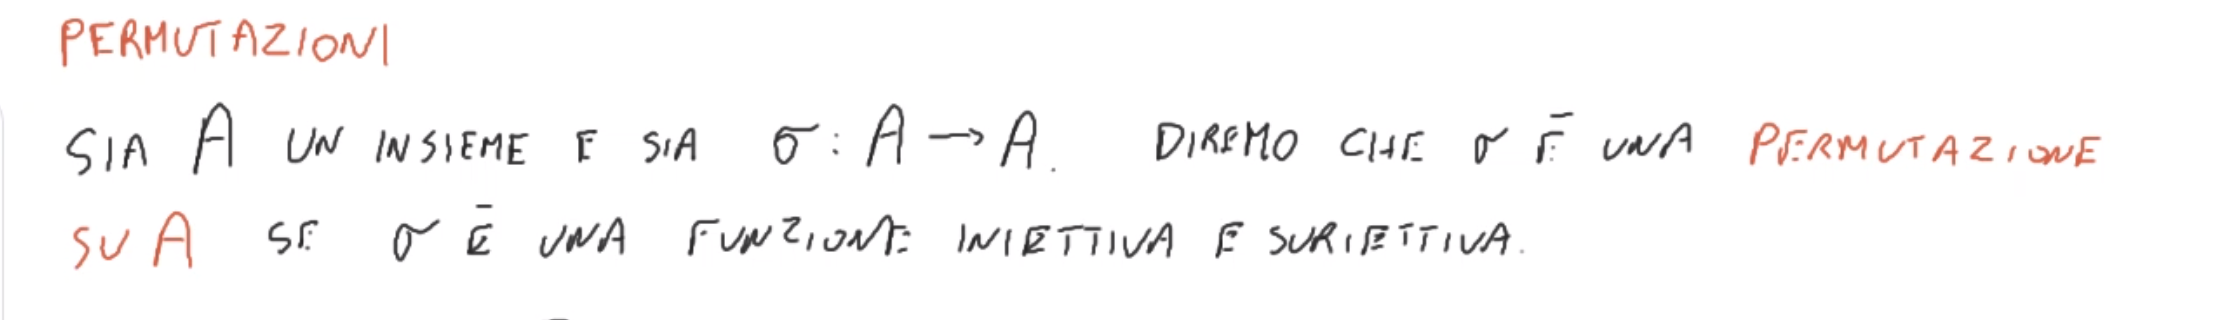 PERMUTAZIONI
SIA A UN INSIEME E SIA σ: A → A. DIREMO CHE σ Ē UNA PERMUTAZIONE
SU A SE σ Ē UNA FUNZIONE INIETTIVA E SURIETTIVA.